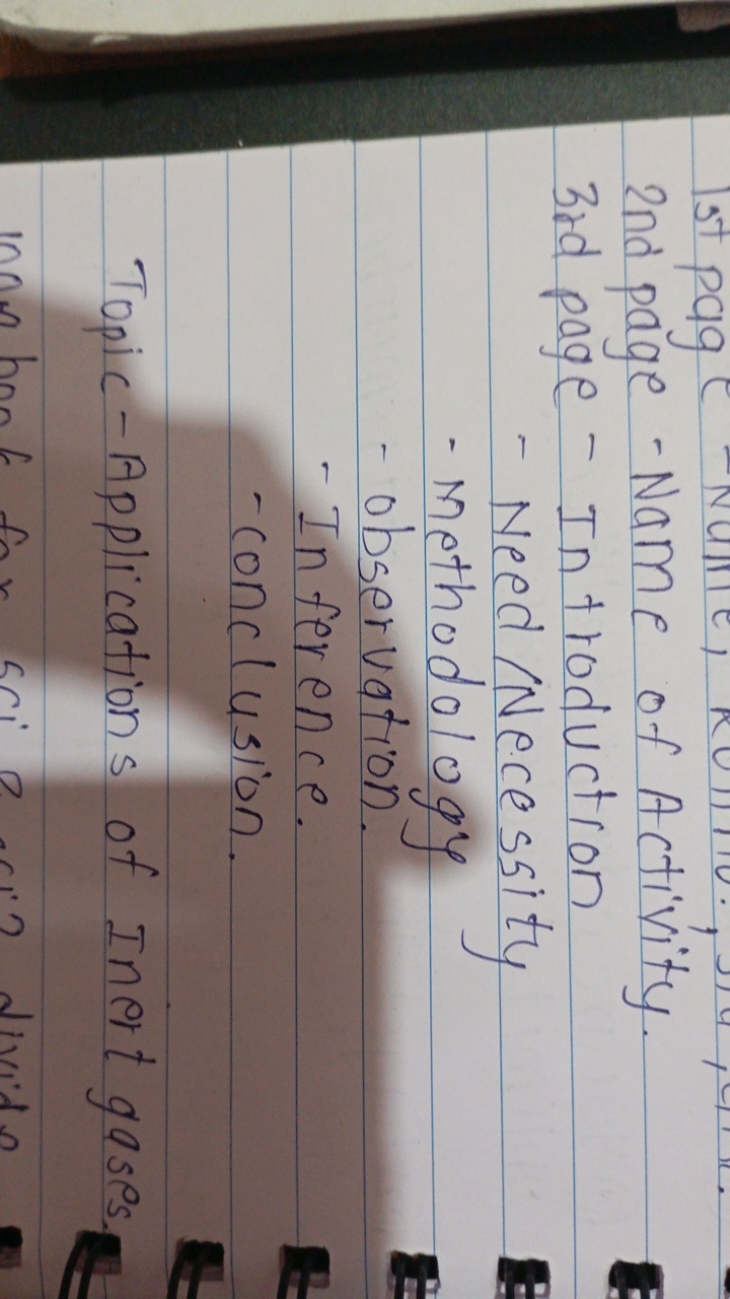 1st page - Name, Roll no., Std,
2nd page - Name of Activity.
3rd page - Introduction
- Need/Necessity
- Methodology
- observation.
- Inference.
- conclusion.
Topic - Applications of Inert gases.
book for sci & sci2 divide